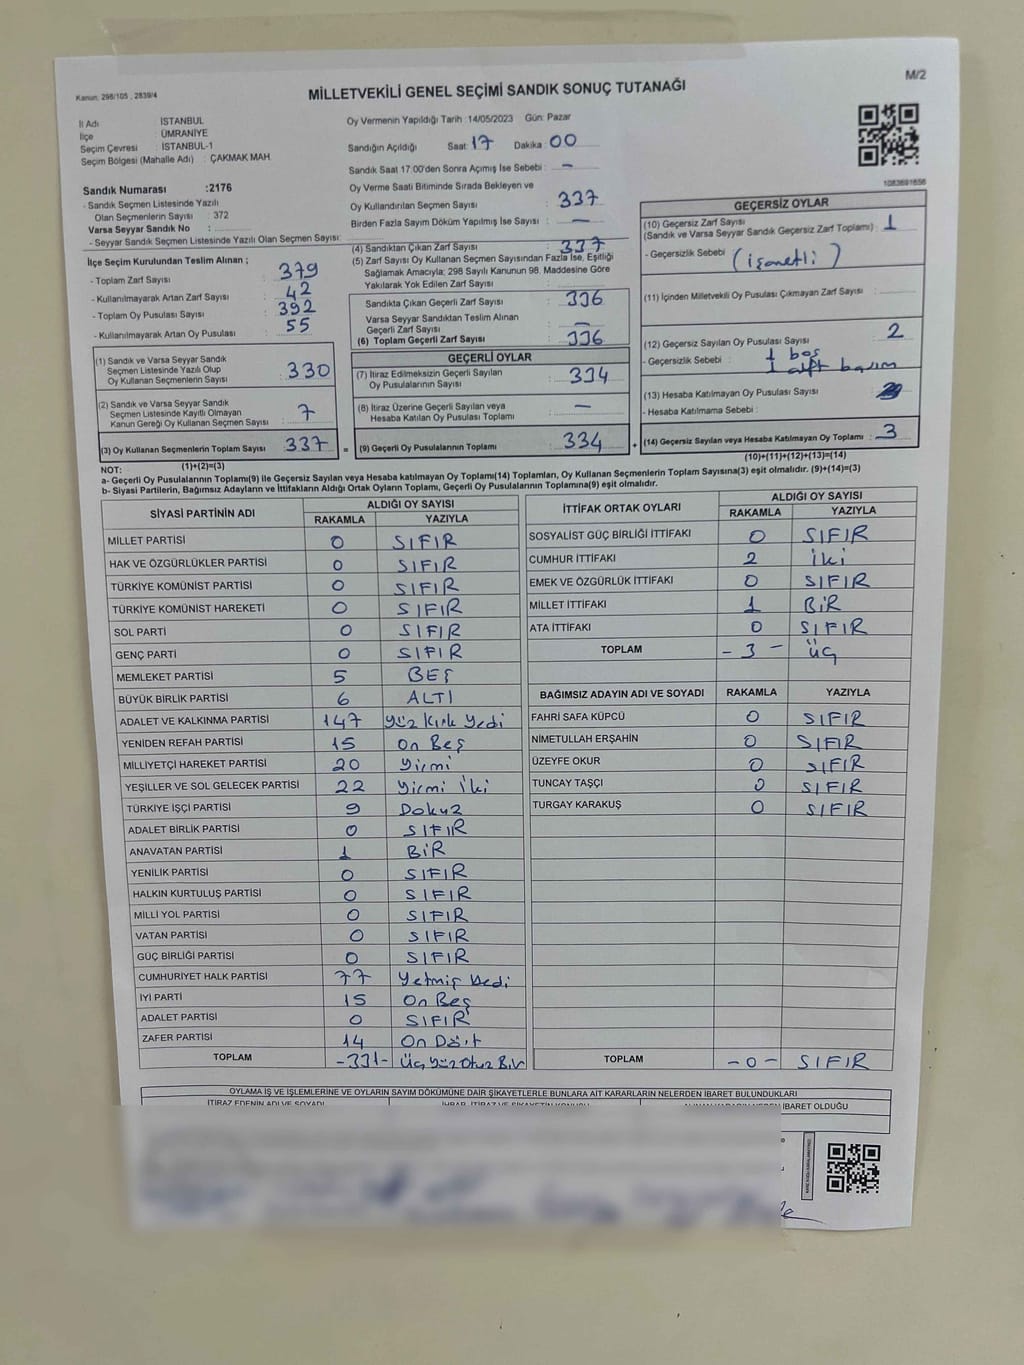 Kanun, 298/105 , 2839/4
M/2
MİLLETVEKİLİ GENEL SEÇİMİ SANDIK SONUÇ TUTANAĞI
İl Adı : İSTANBUL
İlçe : ÜMRANİYE
Seçim Çevresi : İSTANBUL-1
Seçim Bölgesi (Mahalle Adı) : ÇAKMAK MAH
Sandık Numarası :2176
- Sandık Seçmen Listesinde Yazılı
Olan Seçmenlerin Sayısı : 372
Varsa Seyyar Sandık No :
- Seyyar Sandık Seçmen Listesinde Yazılı Olan Seçmen Sayısı:
İlçe Seçim Kurulundan Teslim Alınan ;
- Toplam Zarf Sayısı : 379
- Kullanılmayarak Artan Zarf Sayısı : 42
- Toplam Oy Pusulası Sayısı : 392
- Kullanılmayarak Artan Oy Pusulası : 55
(1) Sandık ve Varsa Seyyar Sandık
Seçmen Listesinde Yazılı Olup
Oy Kullanan Seçmenlerin Sayısı : 330
(2) Sandık ve Varsa Seyyar Sandık
Seçmen Listesinde Kayıtlı Olmayan
Kanun Gereği Oy Kullanan Seçmen Sayısı : 7
(3) Oy Kullanan Seçmenlerin Toplam Sayısı : 337 =
(1)+(2)=(3)
Oy Vermenin Yapıldığı Tarih :14/05/2023 Gün: Pazar
Sandığın Açıldığı Saat: 17 Dakika: 00
Sandık Saat 17:00'den Sonra Açımış İse Sebebi : –
Oy Verme Saati Bitiminde Sırada Bekleyen ve
Oy Kullandırılan Seçmen Sayısı : 337
Birden Fazla Sayım Döküm Yapılmış İse Sayısı : –
(4) Sandıktan Çıkan Zarf Sayısı : 337
(5) Zarf Sayısı Oy Kullanan Seçmen Sayısından Fazla İse, Eşitliği
Sağlamak Amacıyla; 298 Sayılı Kanunun 98. Maddesine Göre
Yakılarak Yok Edilen Zarf Sayısı :
Sandıkta Çıkan Geçerli Zarf Sayısı : 336
Varsa Seyyar Sandıktan Teslim Alınan
Geçerli Zarf Sayısı : –
(6) Toplam Geçerli Zarf Sayısı : 336
GEÇERLİ OYLAR
(7) İtiraz Edilmeksizin Geçerli Sayılan
Oy Pusulalarının Sayısı : 334
(8) İtiraz Üzerine Geçerli Sayılan veya
Hesaba Katılan Oy Pusulası Toplamı : –
(9) Geçerli Oy Pusulalarının Toplamı : 334 +
1083691656
GEÇERSİZ OYLAR
(10) Geçersiz Zarf Sayısı
(Sandık ve Varsa Seyyar Sandık Geçersiz Zarf Toplamı) : 1
- Geçersizlik Sebebi : (işaretli)
(11) İçinden Milletvekili Oy Pusulası Çıkmayan Zarf Sayısı :
(12) Geçersiz Sayılan Oy Pusulası Sayısı : 2
- Geçersizlik Sebebi : 1 boş
1 çift basım
(13) Hesaba Katılmayan Oy Pusulası Sayısı :
- Hesaba Katılmama Sebebi :
(14) Geçersiz Sayılan veya Hesaba Katılmayan Oy Toplamı : 3
(10)+(11)+(12)+(13)=(14)
NOT:
a- Geçerli Oy Pusulalarının Toplamı(9) ile Geçersiz Sayılan veya Hesaba katılmayan Oy Toplamı(14) Toplamları, Oy Kullanan Seçmenlerin Toplam Sayısına(3) eşit olmalıdır. (9)+(14)=(3)
b- Siyasi Partilerin, Bağımsız Adayların ve İttifakların Aldığı Ortak Oyların Toplamı, Geçerli Oy Pusulalarının Toplamına(9) eşit olmalıdır.
SİYASİ PARTİNİN ADI ALDIĞI OY SAYISI
RAKAMLA YAZIYLA
MİLLET PARTİSİ 0 SIFIR
HAK VE ÖZGÜRLÜKLER PARTİSİ 0 SIFIR
TÜRKİYE KOMÜNİST PARTİSİ 0 SIFIR
TÜRKİYE KOMÜNİST HAREKETİ 0 SIFIR
SOL PARTİ 0 SIFIR
GENÇ PARTİ 0 SIFIR
MEMLEKET PARTİSİ 5 BEŞ
BÜYÜK BİRLİK PARTİSİ 6 ALTI
ADALET VE KALKINMA PARTİSİ 147 Yüz Kırk Yedi
YENİDEN REFAH PARTİSİ 15 On Beş
MİLLİYETÇİ HAREKET PARTİSİ 20 Yirmi
YEŞİLLER VE SOL GELECEK PARTİSİ 22 Yirmi İki
TÜRKİYE İŞÇİ PARTİSİ 9 Dokuz
ADALET BİRLİK PARTİSİ 0 SIFIR
ANAVATAN PARTİSİ 1 BİR
YENİLİK PARTİSİ 0 SIFIR
HALKIN KURTULUŞ PARTİSİ 0 SIFIR
MİLLİ YOL PARTİSİ 0 SIFIR
VATAN PARTİSİ 0 SIFIR
GÜÇ BİRLİĞİ PARTİSİ 0 SIFIR
CUMHURİYET HALK PARTİSİ 77 Yetmiş Yedi
İYİ PARTİ 15 On Beş
ADALET PARTİSİ 0 SIFIR
ZAFER PARTİSİ 14 On Dört
TOPLAM -331- Üç Yüz Otuz Bir
İTTİFAK ORTAK OYLARI ALDIĞI OY SAYISI
RAKAMLA YAZIYLA
SOSYALİST GÜÇ BİRLİĞİ İTTİFAKI 0 SIFIR
CUMHUR İTTİFAKI 2 İki
EMEK VE ÖZGÜRLÜK İTTİFAKI 0 SIFIR
MİLLET İTTİFAKI 1 BİR
ATA İTTİFAKI 0 SIFIR
TOPLAM - 3 - ÜÇ
BAĞIMSIZ ADAYIN ADI VE SOYADI RAKAMLA YAZIYLA
FAHRİ SAFA KÜPCÜ 0 SIFIR
NİMETULLAH ERŞAHİN 0 SIFIR
ÜZEYFE OKUR 0 SIFIR
TUNCAY TAŞÇI 0 SIFIR
TURGAY KARAKUŞ 0 SIFIR
TOPLAM -0- SIFIR
OYLAMA İŞ VE İŞLEMLERİNE VE OYLARIN SAYIM DÖKÜMÜNE DAİR ŞİKAYETLERLE BUNLARA AİT KARARLARIN NELERDEN İBARET BULUNDUKLARI
İTİRAZ EDENİN ADI VE SOYADI İHBAR, İTİRAZ VE ŞİKAYETİN KONUSU ALINAN KARARIN NEDEN İBARET OLDUĞU